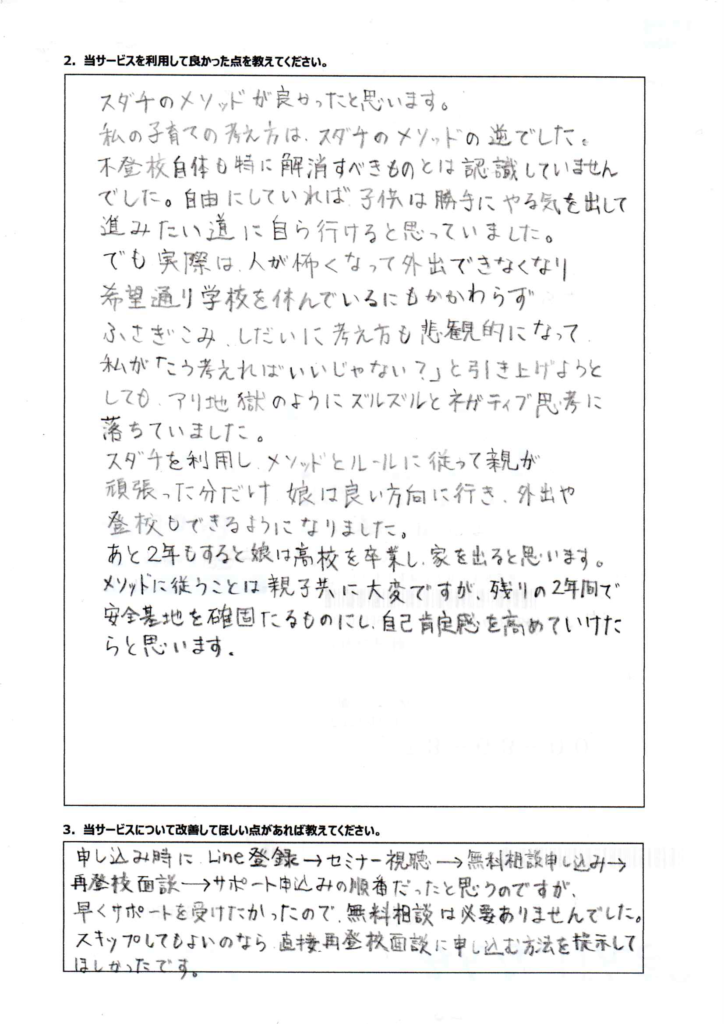 2. 当サービスを利用して良かった点を教えてください。
スダチのメソッドが良かったと思います。
私の子育ての考え方は、スダチのメソッドの逆でした。
不登校自体も特に解消すべきものとは認識していません
でした。自由にしていれば、子供は勝手にやる気を出して
進みたい道に自ら行けると思っていました。
でも実際は、人が怖くなって外出できなくなり
希望通り学校を休んでいるにもかかわらず
ふさぎこみ、しだいに考え方も悲観的になって、
私が「こう考えればいいじゃない?」と引き上げようと
しても、アリ地獄のようにズルズルとネガティブ思考に
落ちていました。
スダチを利用し、メソッドとルールに従って親が
頑張った分だけ 娘は良い方向に行き、外出や
登校もできるようになりました。
あと2年もすると娘は高校を卒業し、家を出ると思います。
メソッドに従うことは親子共に大変ですが、残りの2年間で
安全基地を確固たるものにし、自己肯定感を高めていけた
らと思います。
3. 当サービスについて改善してほしい点があれば教えてください。
申し込み時に、Line登録→セミナー視聴→無料相談申し込み→
再登校面談→サポート申込みの順番だったと思うのですが、
早くサポートを受けたかったので、無料相談は必要ありませんでした。
スキップしてもよいのなら、直接再登校面談に申し込む方法を提示して
ほしかったです。